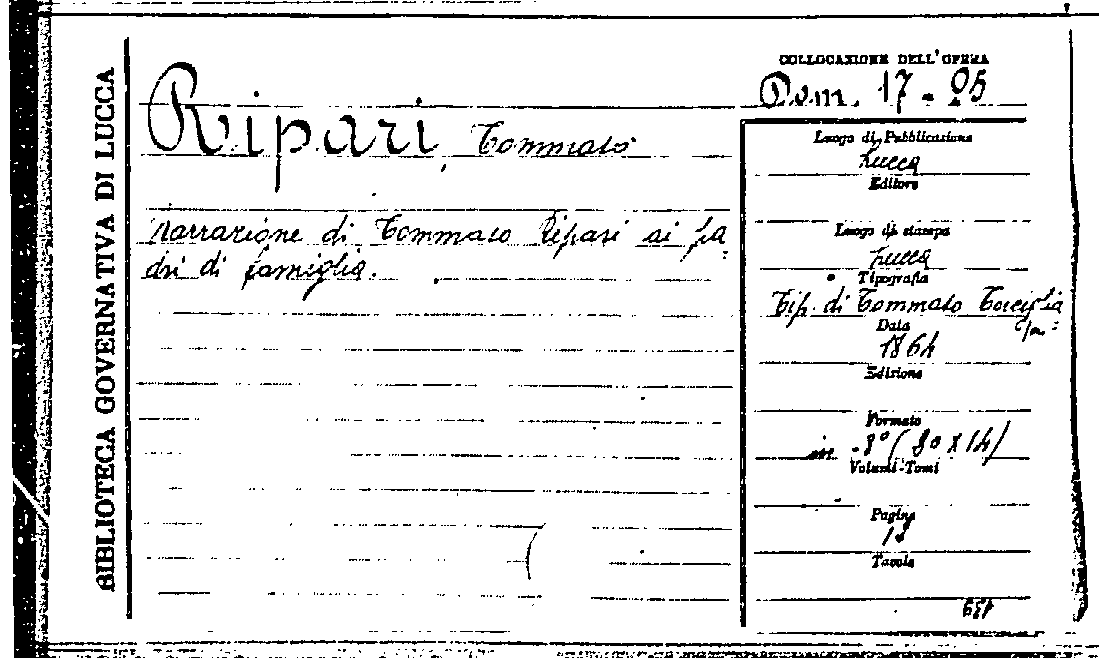 BIBLIOTECA GOVERNATIVA DI LUCCA
Ripari, Tommaso
Narrazione di Tommaso Ripari ai pa=
dri di famiglia.
COLLOCAZIONE DELL'OPERA
Dom. 17 - 05
Luogo di Pubblicazione
Lucca
Editore
Luogo di stampa
Lucca
Tipografia
Tip. di Tommaso Torciglia
Data
1864
Edizione
Formato
in -8° (80 x 14)
Volumi-Tomi
Pagine
Tavole